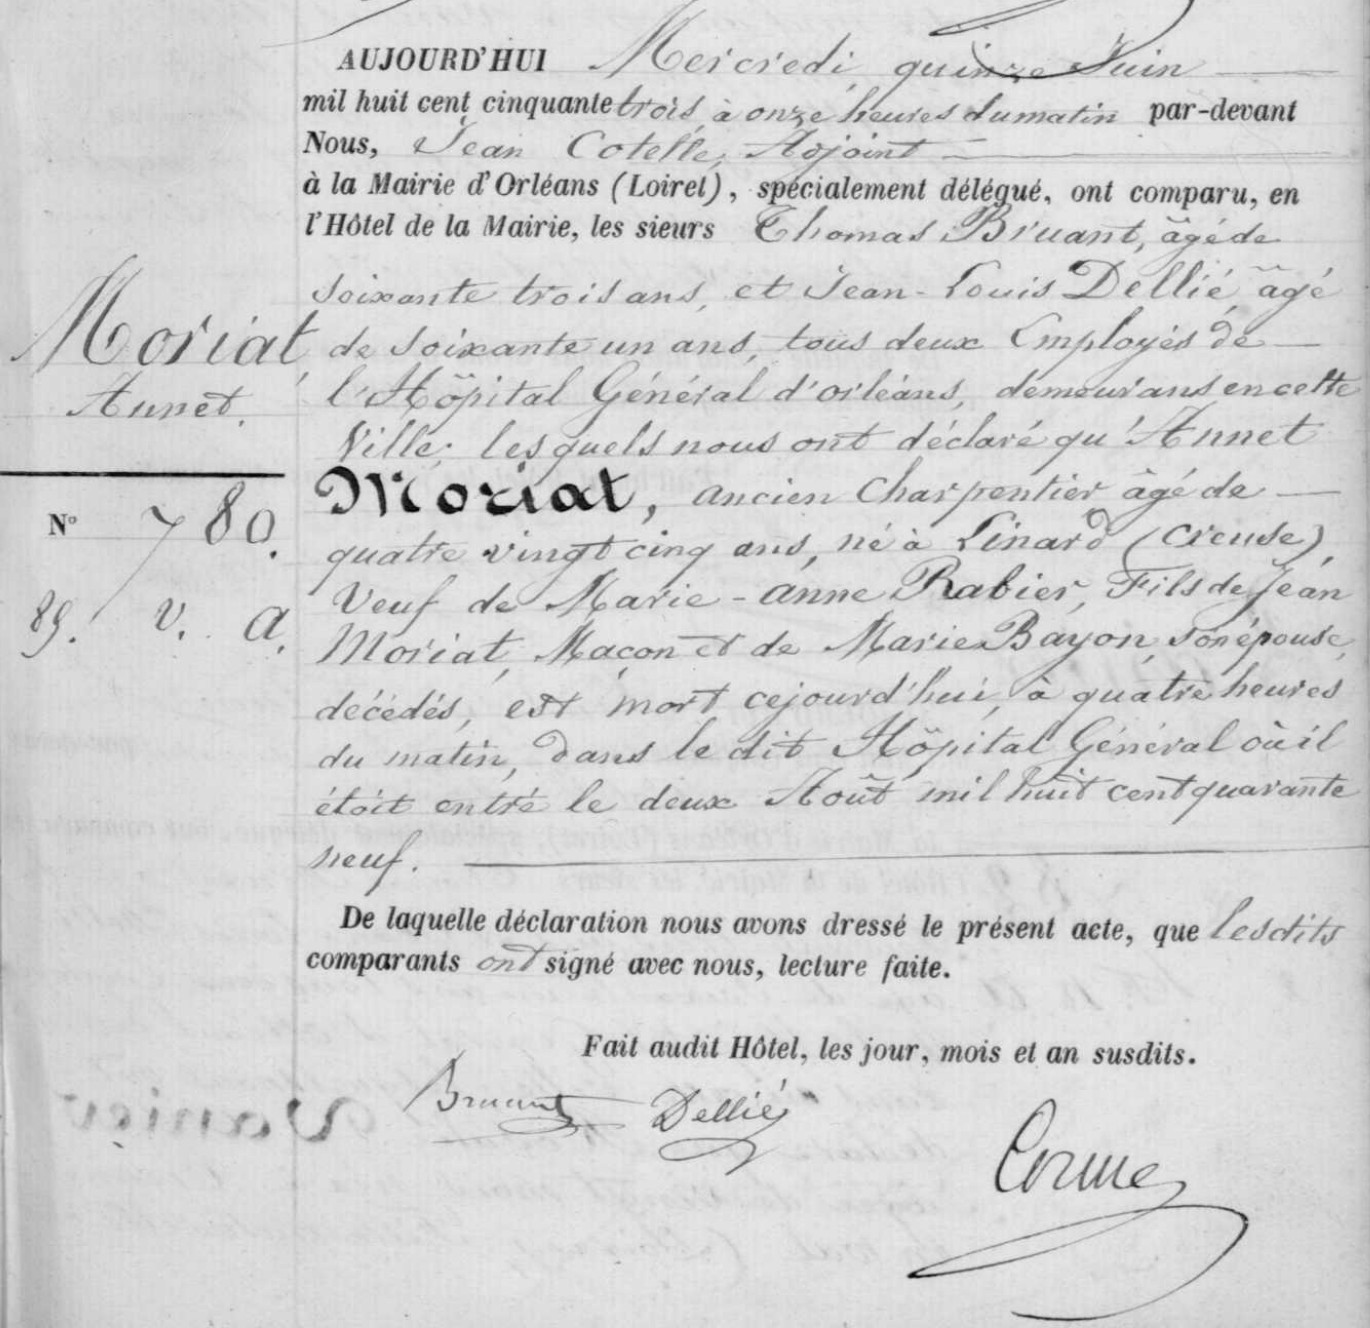 AUJOURD'HUI Mercredi quinze Juin
mil huit cent cinquante trois à onze heures du matin par-devant
Nous, Jean Cotelle, Adjoint
à la Mairie d'Orléans (Loiret), spécialement délégué, ont comparu, en
l'Hôtel de la Mairie, les sieurs Thomas Bruant, âgé de
soixante trois ans, et Jean-Louis Dellié, âgé
de soixante un ans, tous deux Employés de
l'Hôpital Général d'orléans, demeurans en cette
Ville; lesquels nous ont déclaré qu'Annet
Moriat, ancien Charpentier âgé de
quatre vingt cinq ans, né à Linard (Creuse),
Veuf de Marie-anne Rabier, Fils de Jean
Moriat, Maçon et de Marie Bayon, son épouse,
décédés, est mort cejourd'hui, à quatre heures
du matin, dans le dit Hôpital Général où il
étoit entré le deux Août mil huit cent quarante
neuf.
De laquelle déclaration nous avons dressé le présent acte, que lesdits
comparants ont signé avec nous, lecture faite.
Fait audit Hôtel, les jour, mois et an susdits.
Bruant Dellié
Moriat,
Annet.
N° 780.
85. V. A.